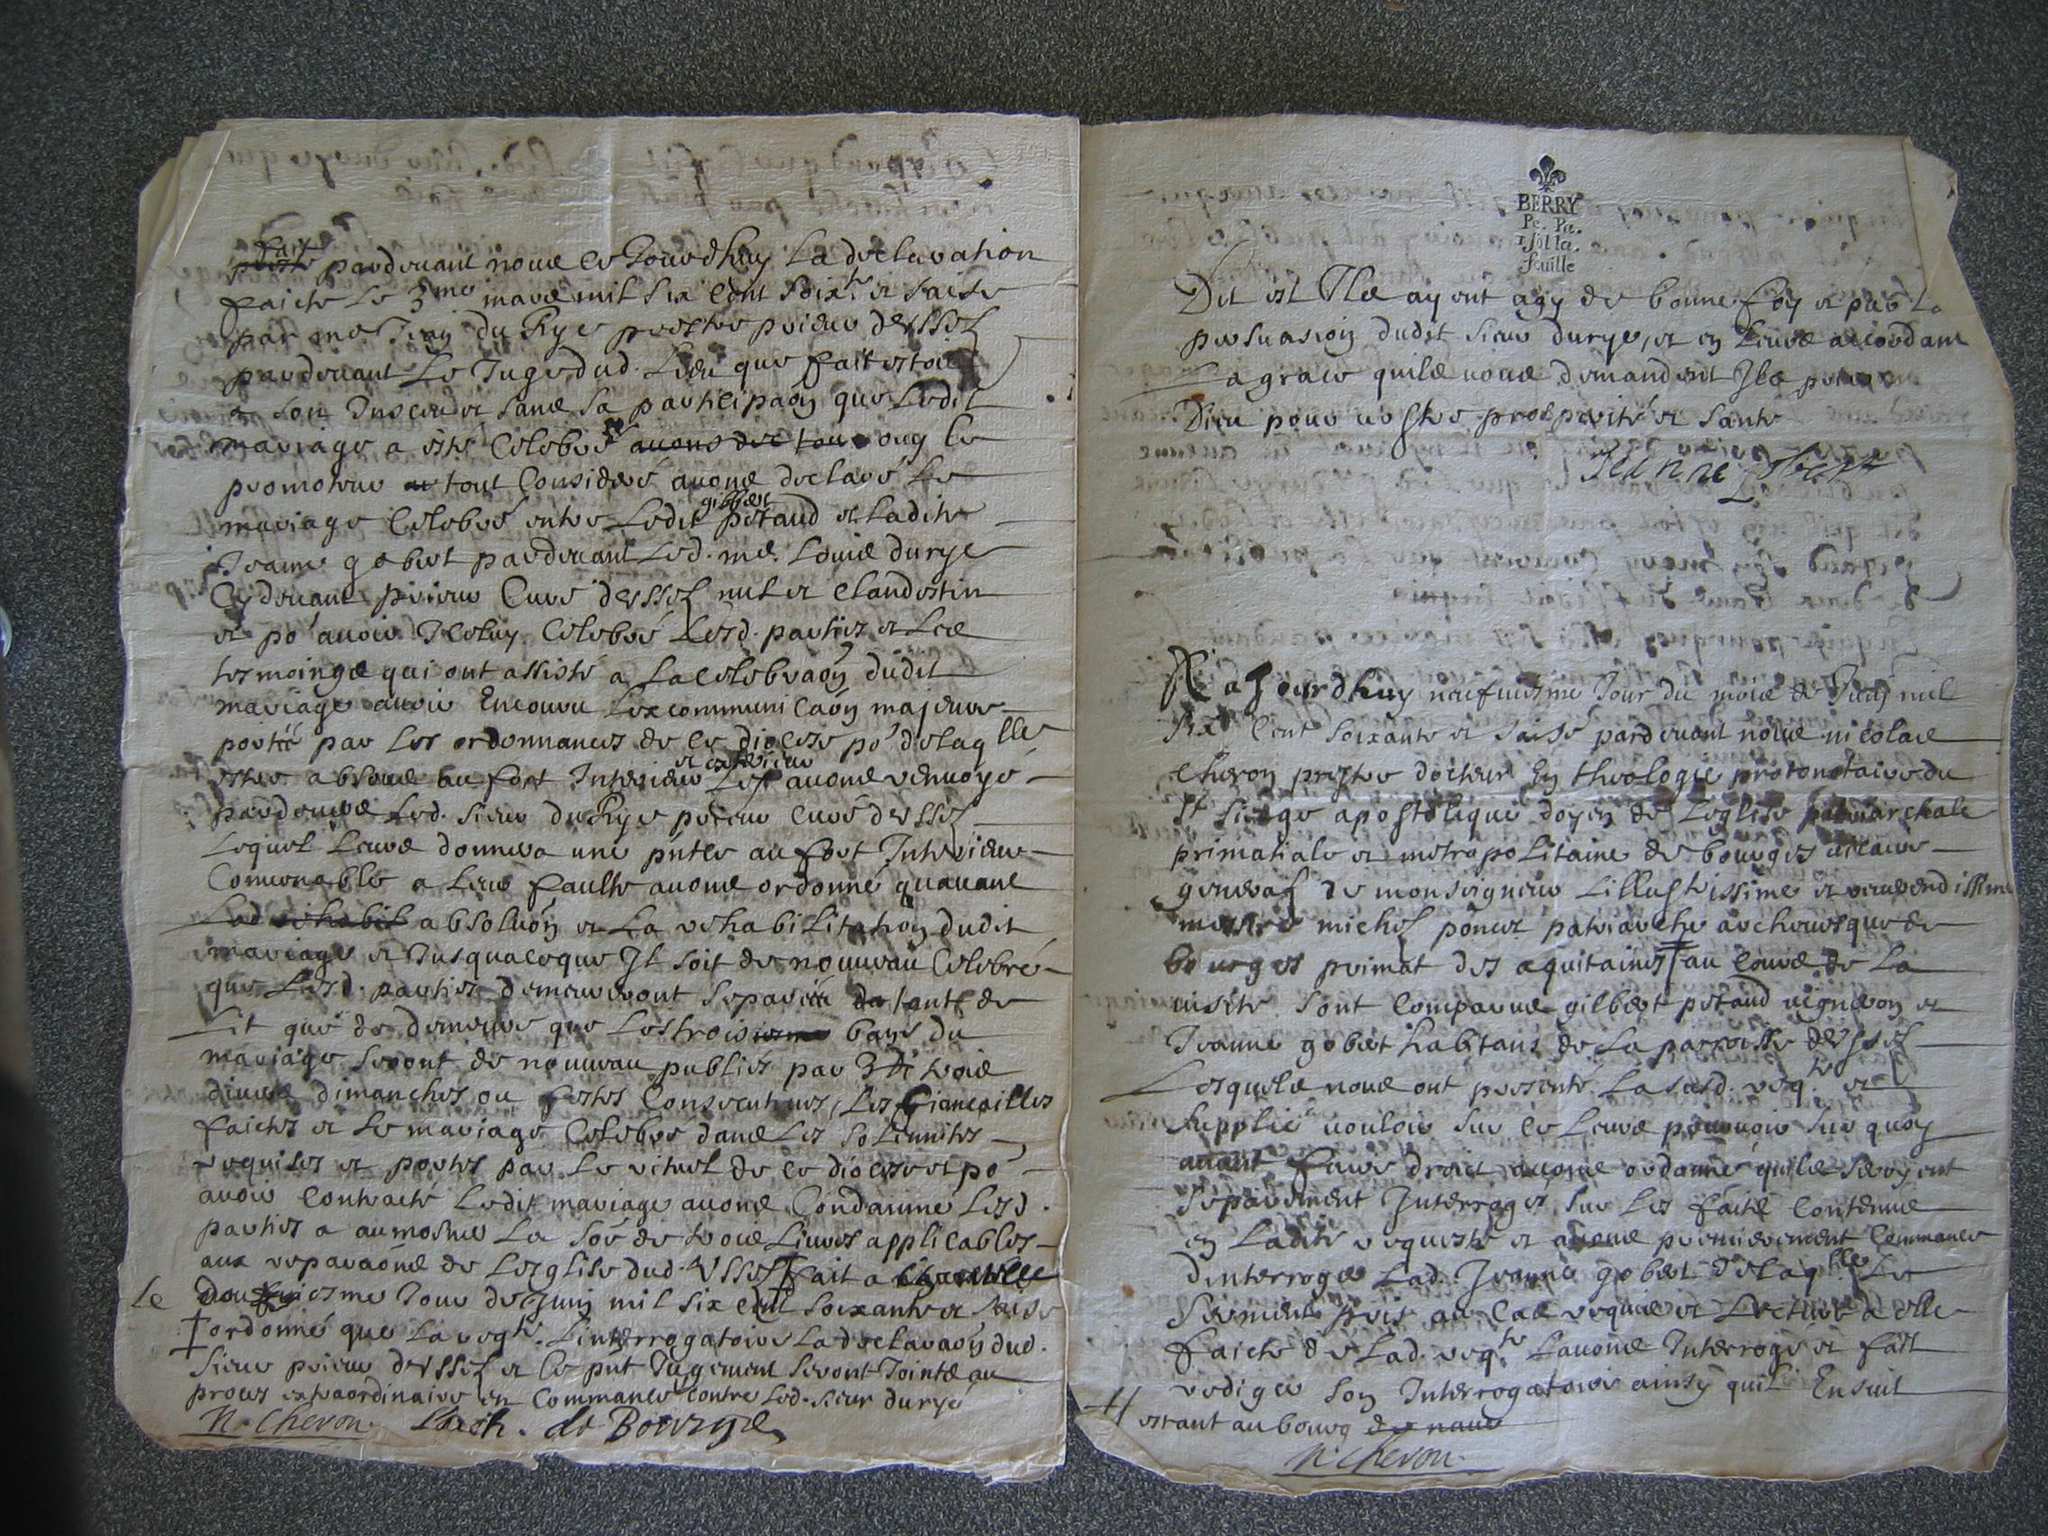 fait
pardevant nous ce Jourdhuy La declaration
faicte le 3me mars mil six cent soixte et saise
par me Jean du Rye prestre prieur dussel
pardevant Le Juge dud. Lieu que fait estoit
a son Insceu et sans sa participaon que Ledit
mariage a esté Celebré avons de tout ouy le
promoteur et tout Consideré avons declaré Le
mariage Celebré entre Ledit gilbert petaud et Ladite
Jeanne gobert pardevant Led. me. Louis durye
Cydevant prieur Curé dussel nul et Clandestin
et po avoir Iceluy Celebré Lesd. parties et Les
tesmoings qui ont assisté a La celebraon dudit
mariage avoir Encouru Lexcommunicaon majeure
portée par Les ordonnances de ce diocese po de laqlle
estre absous au fort Interieur et exterieur Les avons renvoyé
pardevers Led. sieur du Rye prieur curé dussel
Lequel Leurs donnera une pntce au fort Interieur
Convenable a Leur faulte avons ordonné quavant
Lad rehabil absoluon et La rehabilitation dudit
mariage et Jusquaceque Il soit de nouveau Celebré
que Lesd. parties demeureront separés da tant de
Lit que de demeure que Les trois bans du
mariage seront de nouveau publiés par trois
divers dimanches ou festes Consecutives, Les fiancailles
faictes et Le mariage Celebré dans Les solennités
requises et portés par Le rituel de ce diocese et po
avoir Contracté Ledit mariage avons Condamné Lesd.
parties a aumosner La soe de trois Livres applicables
aux reparaons de Lesglise dud. Ussel fait a
le douziesme Jour de Juin mil six cent soixante et saise
ordonné que La reqte. Linterrogatoire La declaraon dud.
sieur prieur dussel et Le pnt Jugement seront Joints au
proces extraordinaire en Commancé contre Led. sieur durye
N. Cheron. Vach. de Bourges
BERRY
Pe. Pa.
1 sol la.
feuille
Dit est Ils ayent agy de bonne foy et par La
persuasion dudit sieur durye, et en Leurs accordant
La grace quils vous demandent Ils prieront
Dieu pour vostre prosperité et santé
Jeanne gobert
Aujourdhuy neufviesme Jour du mois de Juin mil
six Cent soixante et saise pardevant nous nicolas
cheron prestre docteur En theologie protonotaire du
st siege apostolique doyen de Leglise patriarchale
primatiale et metropolitaine de bourges vicaire
general de monseigneur Lillustrissime et reverendissime
messire michel poncet patriarche archevesque de
bourges primat des aquitaines au Cours de La
visite sont Comparus gilbert petaud vigneron et
Jeanne gobert habitans de La parroisse dussel
Lesquels nous ont presenté La susd. reqte. et
supplié vouloir sur ce Leurs pourvoir sur quoy
avant faire droict avons ordonné quils seroyent
separement Interrogés sur Les faits Contenus
en Ladite requeste et avons premierement Commancé
dinterroger Lad. Jeanne gobert de laqlle Le
serment pris au Cas requis et Lecture a elle
faicte de Lad. reqte Lavons Interrogé et fait
rediger son Interrogatoire ainsy quil Ensuit
estant au bourg
N. Cheron.